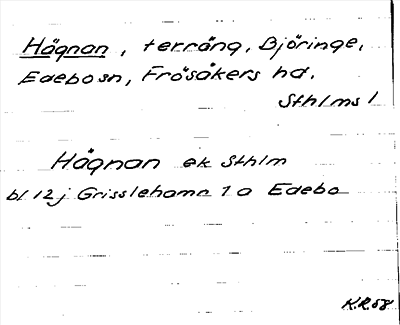 Hägnan, terräng, Björinge,
Edebo sn, Frösåkers hd.
Sthlms l
Hägnan ek Sthlm
bl 12 j Grisslehamn 1 o Edebo
K.R. 58